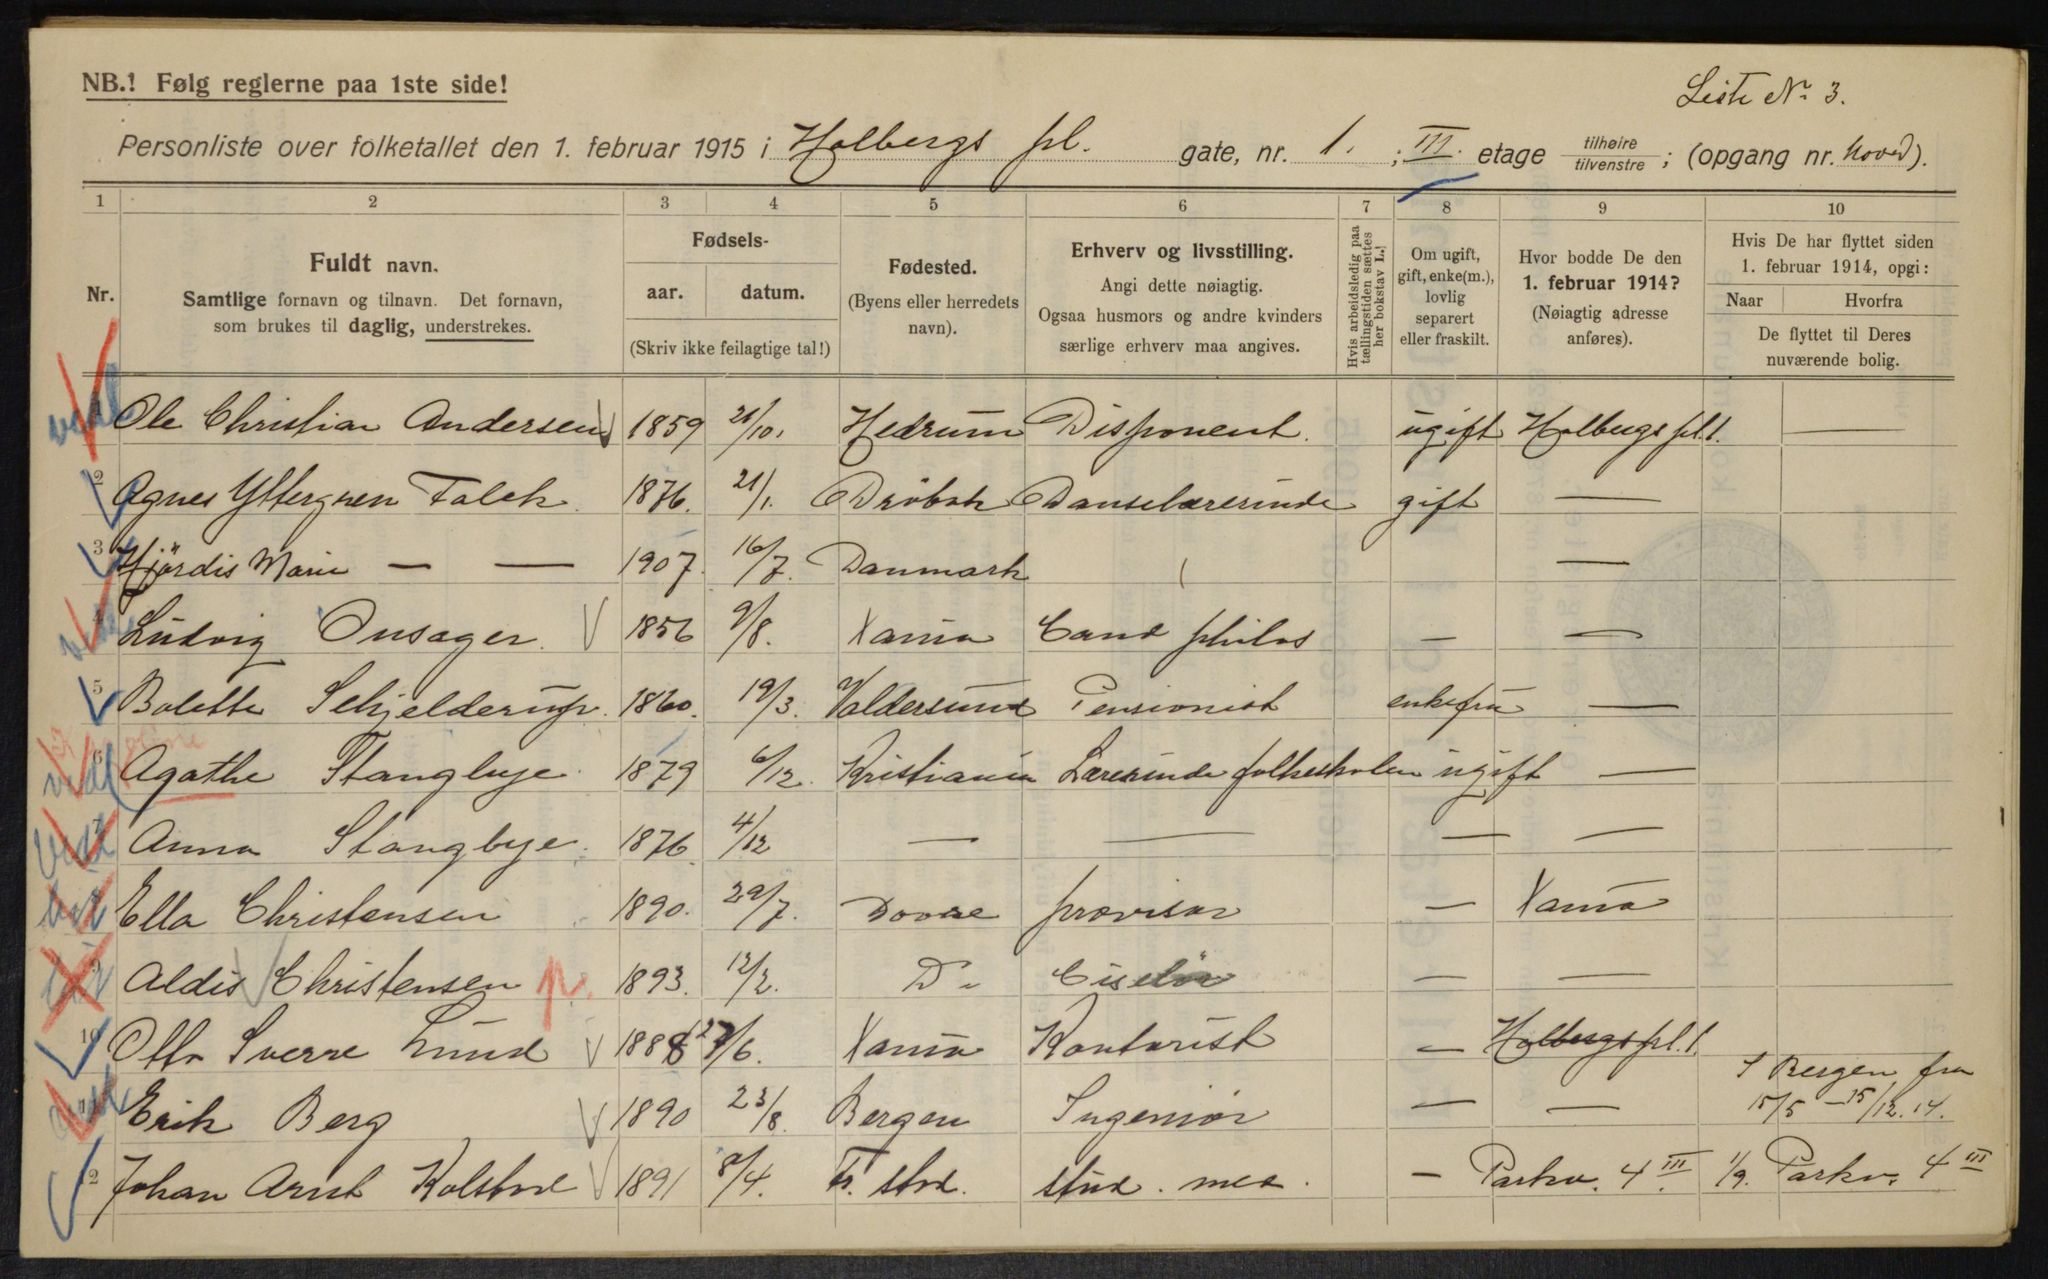 Liste No. 3.
NB.! Følg reglerne paa 1ste side!
Personliste over folketallet den 1. februar 1915 i Holbergs pl. gate, nr. 1. ; III. etage tilhøire tilvenstre ; (opgang nr. hoved).
1 2 3 4 5 6 7 8 9 10
Nr.
Fuldt navn.
Samtlige fornavn og tilnavn. Det fornavn,
som brukes til daglig, understrekes.
Fødsels-
aar. datum.
(Skriv ikke feilagtige tal!)
Fødested.
(Byens eller herredets
navn).
Erhverv og livsstilling.
Angi dette nøiagtig.
Ogsaa husmors og andre kvinders
særlige erhverv maa angives.
Hvis arbeidsledig paa
tællingstiden sættes
her bokstav L.
Om ugift,
gift, enke(m.),
lovlig
separert
eller fraskilt.
Hvor bodde De den
1. februar 1914?
(Nøiagtig adresse
anføres).
Hvis De har flyttet siden
1. februar 1914, opgi:
Naar Hvorfra
De flyttet til Deres
nuværende bolig.
1 Ole Christian Andersen 1859 21/10. Hedrum Disponent. ugift Holbergs pl. 1. —
2 Agnes Yttergren Falck. 1876. 21/1. Drøbak Danselærerinde gift —
3 Hjördis Marie — — 1907. 16/7. Danmark —
4 Ludvig Onsager. 1856 9/8. Xania Cand philos — —
5 Bolette Schjelderup. 1860. 19/3. Valdersund Pensionist enkefru —
6 Agathe Stangbye. 1879 6/12. Kristiania Lærerinde folkeskolen ugift —
7 Anna Stangbye. 1876. 4/12 — — — —
8 Ella Christensen 1890. 29/7. Dovre provisor — Xania
9 Aldis Christensen p. 1893. 12/2. Do Ciselør — —
10 Otto Sverre Lund 1888 27/6. Xania Kontorist — Holbergs pl. 1.
11 Erik Berg 1890 23/8. Bergen Ingeniør — — I Bergen fra
15/5 – 15/12. 14.
12 Johan Arnt Kolstad 1891 8/4. Fr. stad. stud. med. — Parkv. 4 III. 1/9. Parkv. 4 III